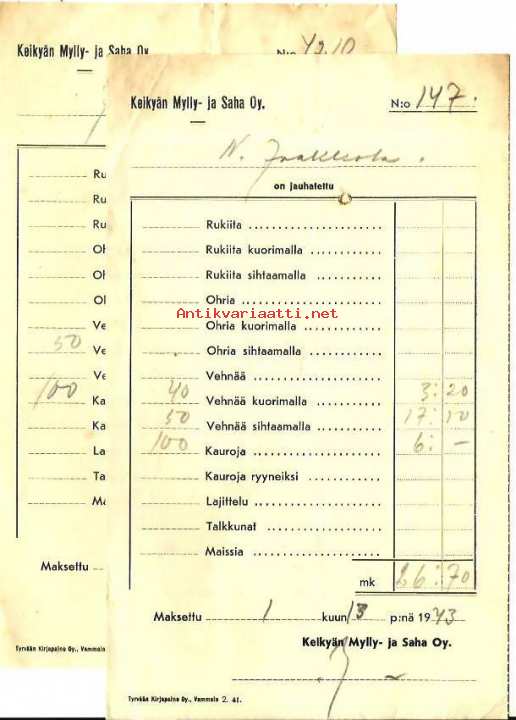 Keikyän Mylly- ja Saha Oy
N:o 4210
Ru
Ru
Ru
Oh
Oh
Ol
Ve
50 Ve
Ve
100 Ka
Ka
La
Ta
Ma
Maksettu
Tyrvään Kirjapaino Oy., Vammala
Keikyän Mylly- ja Saha Oy.
N:o 147.
N. Jaakkola.
on jauhatettu
Rukiita
Rukiita kuorimalla
Rukiita sihtaamalla
Ohria
Antikvariaatti.net
Ohria kuorimalla
Ohria sihtaamalla
Vehnää
40 Vehnää kuorimalla 3:20
50 Vehnää sihtaamalla 17:50
100 Kauroja 6:–
Kauroja ryyneiksi
Lajittelu
Talkkunat
Maissia
mk 26:70
Maksettu 1 kuun 13 p:nä 1943
Keikyän Mylly- ja Saha Oy.
Tyrvään Kirjapaino Oy., Vammala 2. 41.